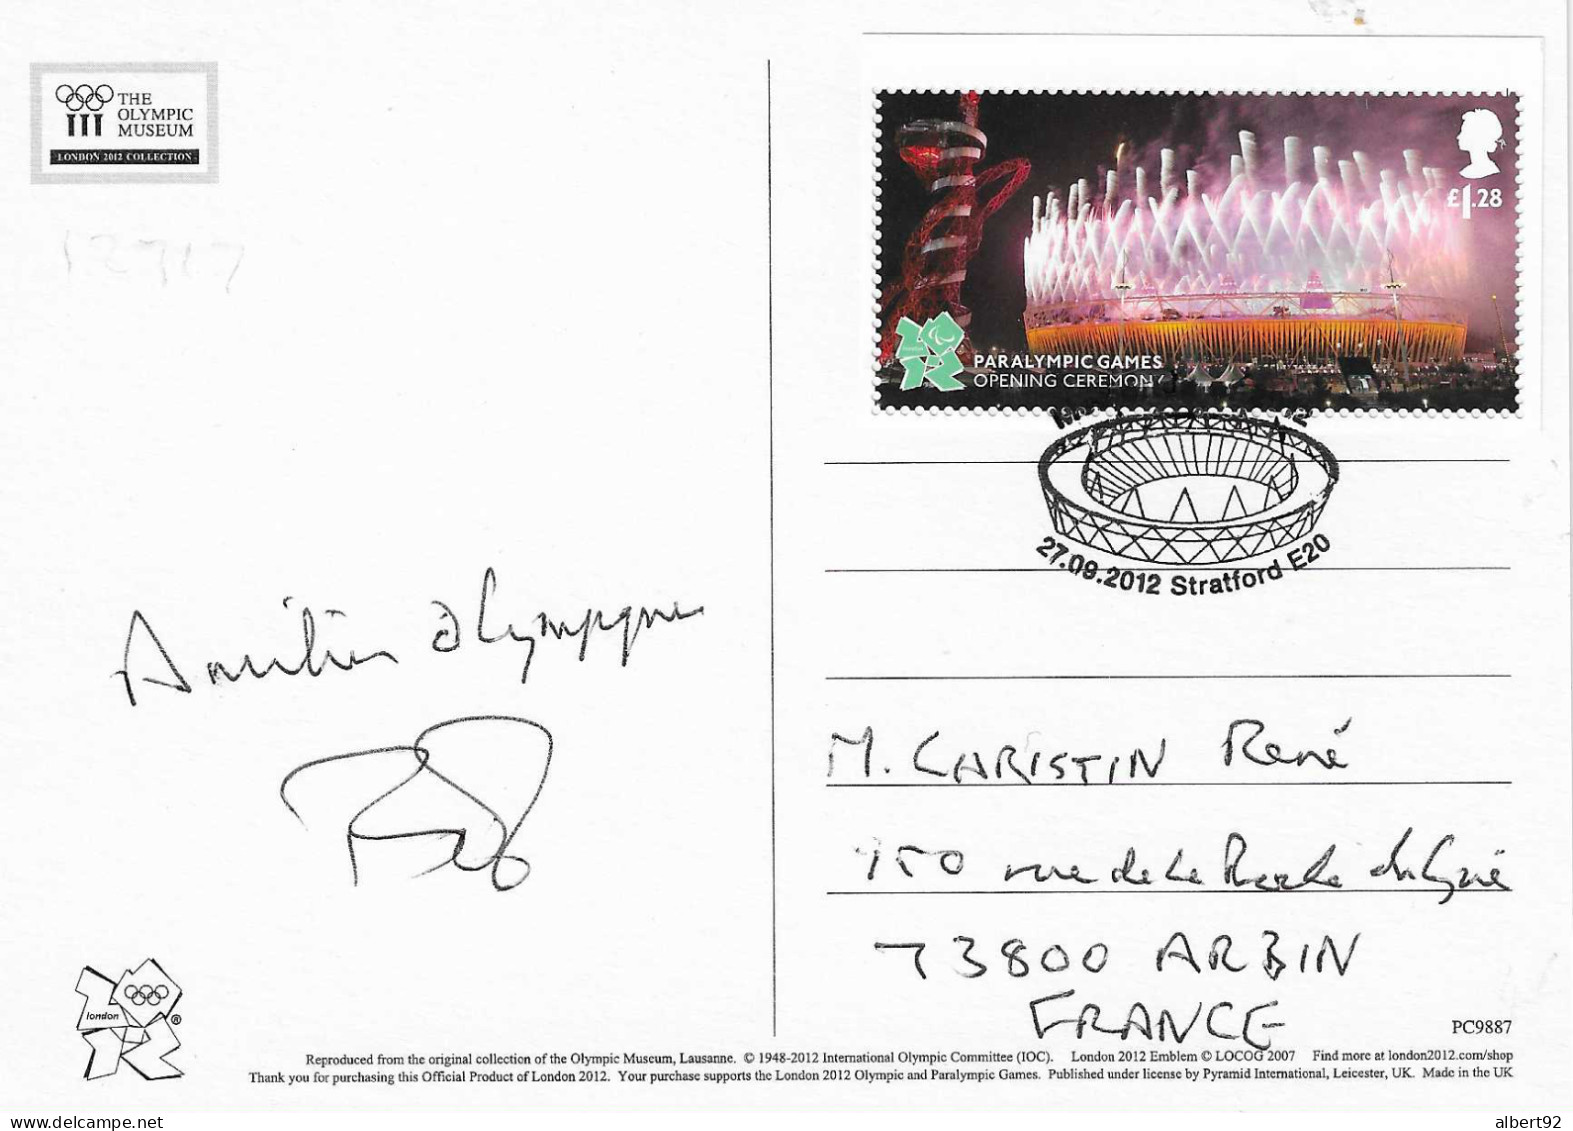 THE
OLYMPIC
MUSEUM
LONDON 2012 COLLECTION
£1.28
PARALYMPIC GAMES
OPENING CEREMONY
27.09.2012 Stratford E20
Amitiés olympiques
M. CARISTIN René
150 rue de la
73800 ARBIN
FRANCE
london
®
PC9887
Reproduced from the original collection of the Olympic Museum, Lausanne. © 1948-2012 International Olympic Committee (IOC). London 2012 Emblem © LOCOG 2007 Find more at london2012.com/shop
Thank you for purchasing this Official Product of London 2012. Your purchase supports the London 2012 Olympic and Paralympic Games. Published under license by Pyramid International, Leicester, UK. Made in the UK
albert92